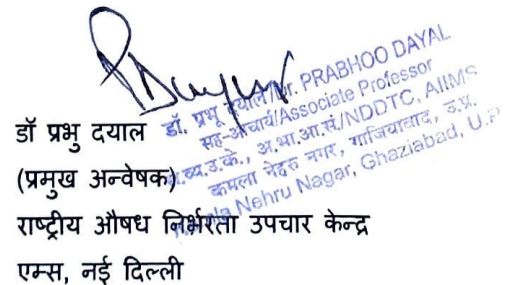 डॉ प्रभु दयाल
(प्रमुख अन्वेषक)
राष्ट्रीय औषध निर्भरता उपचार केन्द्र
एम्स, नई दिल्ली
डॉ. प्रभू दयाल/Dr. PRABHOO DAYAL
सह-आचार्य/Associate Professor
रा.व्य.उ.के., अ.भा.आ.सं./NDDTC, AIIMS
कमला नेहरु नगर, गाजियाबाद, उ.प्र.
Nehru Nagar, Ghaziabad, U.P